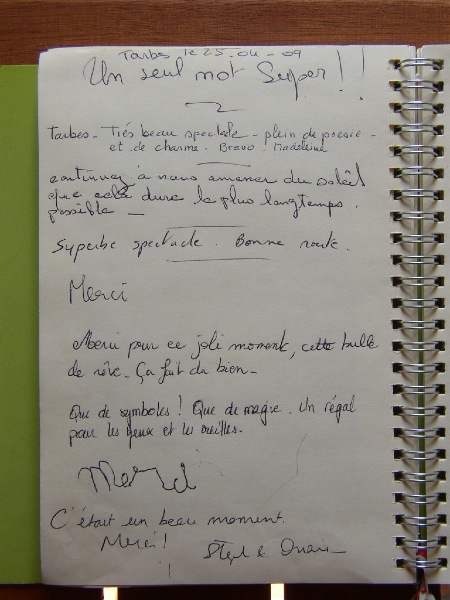 Tarbes le 25-04-09
Un seul mot Super !!
Tarbes - Très beau spectacle - plein de poésie -
et de charme. Bravo Madeleine
continuez à nous amener du soleil
que cela dure le plus longtemps
possible -
Superbe spectacle. Bonne route.
Merci
Merci pour ce joli moment, cette bulle
de rêve. Ça fait du bien -
Que de symboles ! Que de magie. Un régal
pour les yeux et les oreilles.
Merci
C'était un beau moment.
Merci !